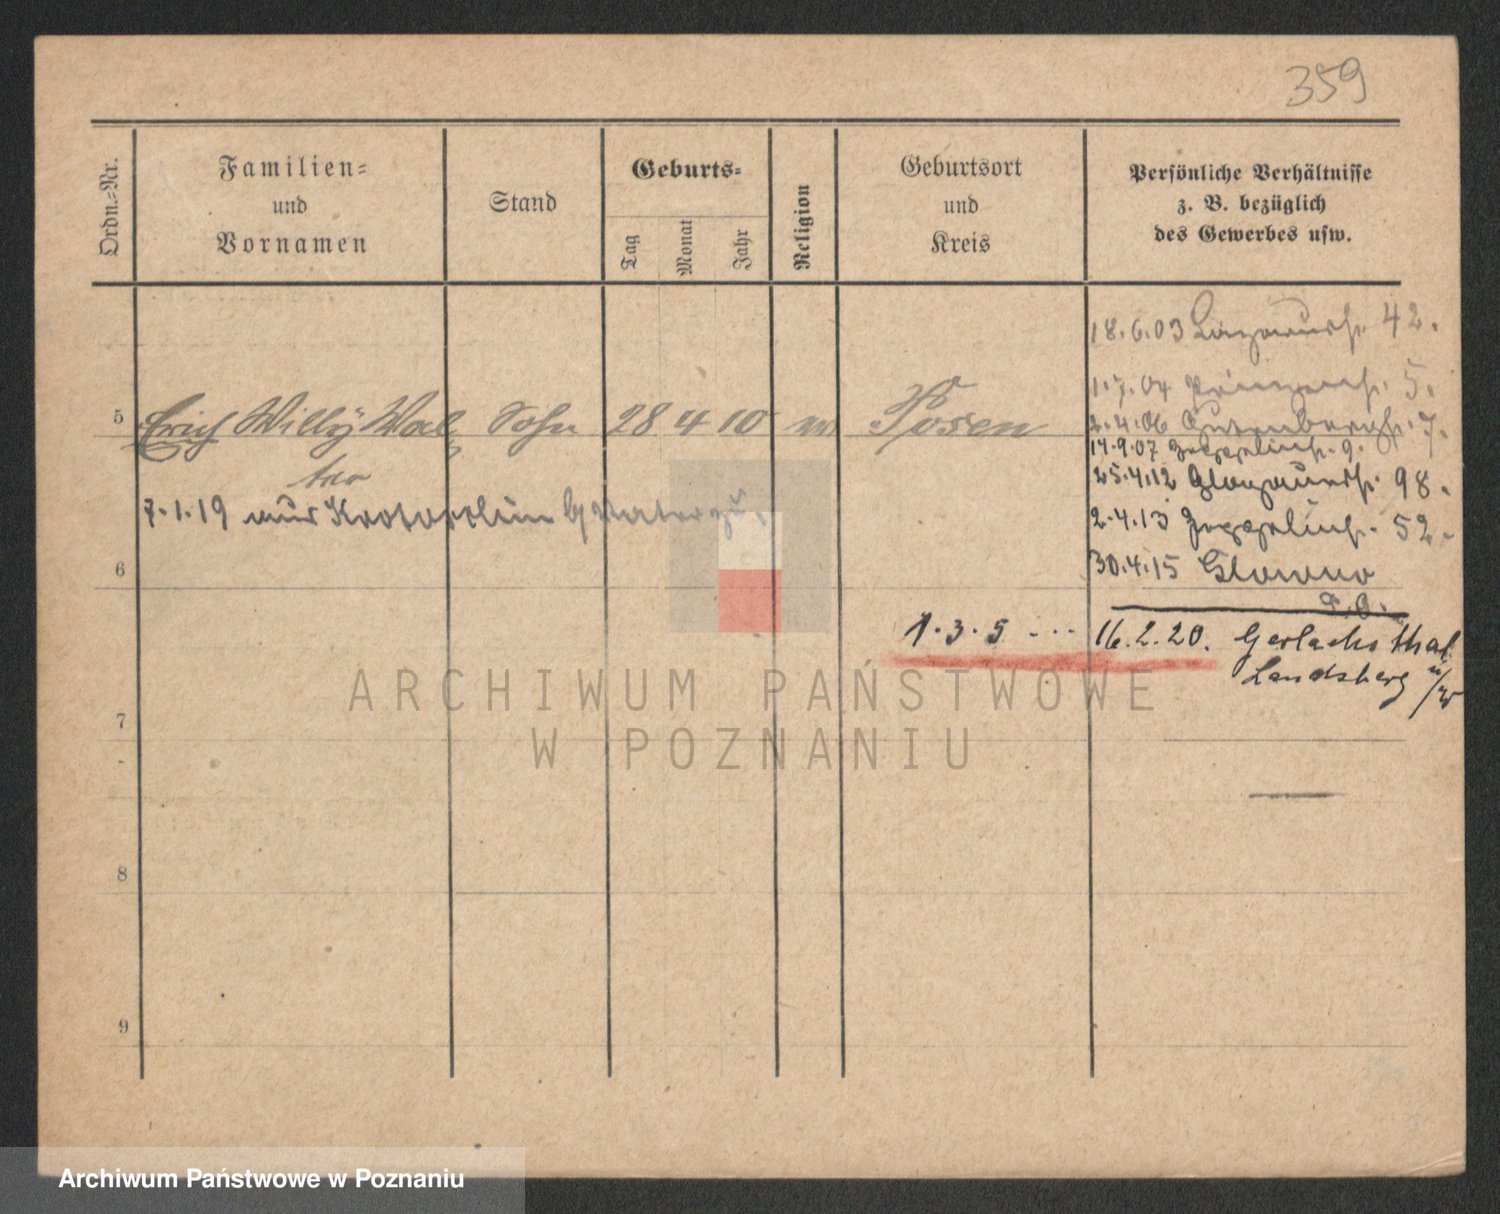 359
Ordn.-Nr.
Familien-
und
Vornamen
Stand
Geburts-
Tag
Monat
Jahr
Religion
Geburtsort
und
Kreis
Persönliche Verhältnisse
z. B. bezüglich
des Gewerbes usw.
18.6.03 42.
1.7.04 Prinzenst. 5.
2.4.06 Gutenbergst. 7.
14.9.07 Zeppelinst. 9.
25.4.12 Glogauerst. 98.
2.4.13 Zeppelinst. 52.
30.4.15 Glowno
P.O.
5 Erich Willy Wal- Sohn 28 4 10 Posen
ter
7.1.19 aus Krotoschin
6
1.3.5 ... 16.2.20. Gerlachsthal
Landsberg a/W
7
8
9
ARCHIWUM PAŃSTWOWE
W POZNANIU
Archiwum Państwowe w Poznaniu